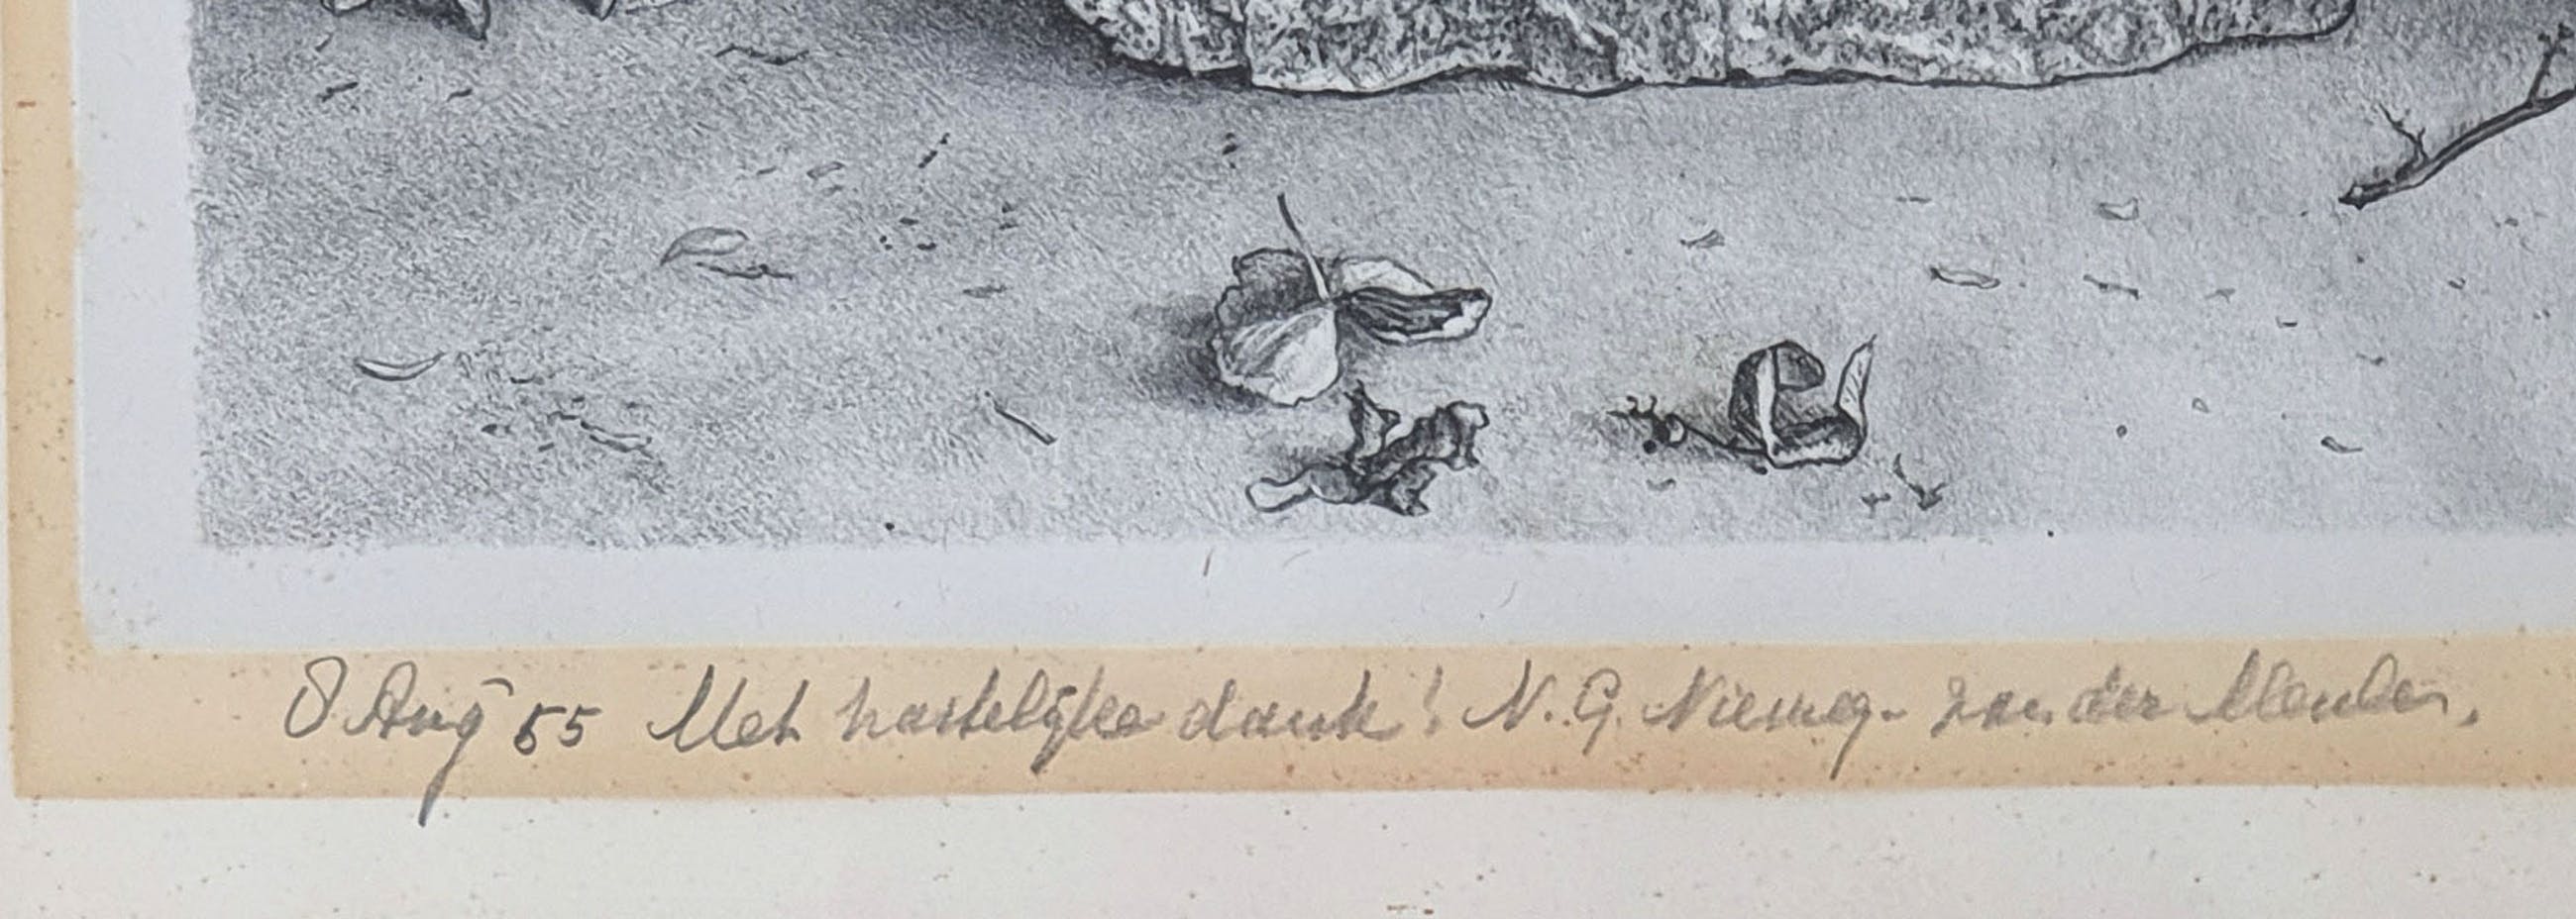 8 Aug 55 Met hartelijke dank! N. G. Niemeg- van der Meulen.